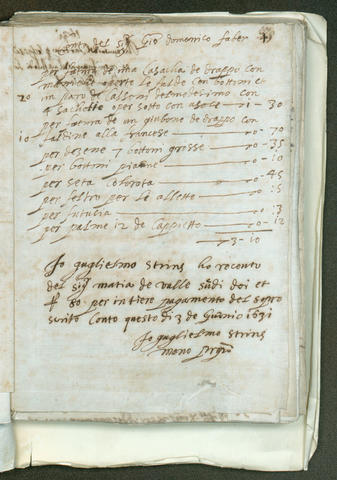 Conto del sigr Gio domenico faber
per fatura di una Casacha di drappo con
maniche aperte le falde con bottoni et
un paro di Calzoni del medesimo con
4 sachotte per sotto con asole 1 - 30
20
per fatura de un giubone de drappo con
faldine alla francese 0 - 70
10
per dozene 7 bottoni grosse 0 - 35
per bottoni picine 0 - 10
per seta Colorota 0 - 45
per feltro per le allette 0 : 15
per 0 : 3
per palme 12 de Cappietto 0 - 12
3 - 10
Jo guglielmo Strins ho receuto
del sigr matia de valle sudi doi et
80 per intiere pagamento del sopro
scrito Conto questo di 3 de Giunio 1631
Jo guglielmo Strins
mano pp